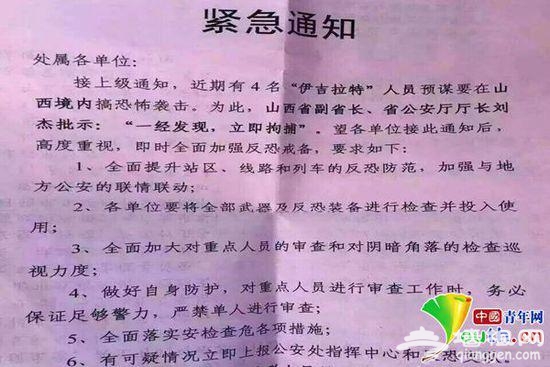 紧急通知
处属各单位:
接上级通知，近期有4名“伊吉拉特”人员预谋要在山
西境内搞恐怖袭击。为此，山西省副省长、省公安厅厅长刘
杰批示：“一经发现，立即拘捕”。望各单位接此通知后，
高度重视，即时全面加强反恐戒备，要求如下：
1、全面提升站区、线路和列车的反恐防范，加强与地
方公安的联情联动；
2、各单位要将全部武器及反恐装备进行检查并投入使
用；
3、全面加大对重点人员的审查和对阴暗角落的检查巡
视力度；
4、做好自身防护，对重点人员进行审查工作时，务必
保证足够警力，严禁单人进行审查；
5、全面落实安检查危各项措施；
6、有可疑情况立即上报公安处指挥中心和
中国青年网
qiongyou.com